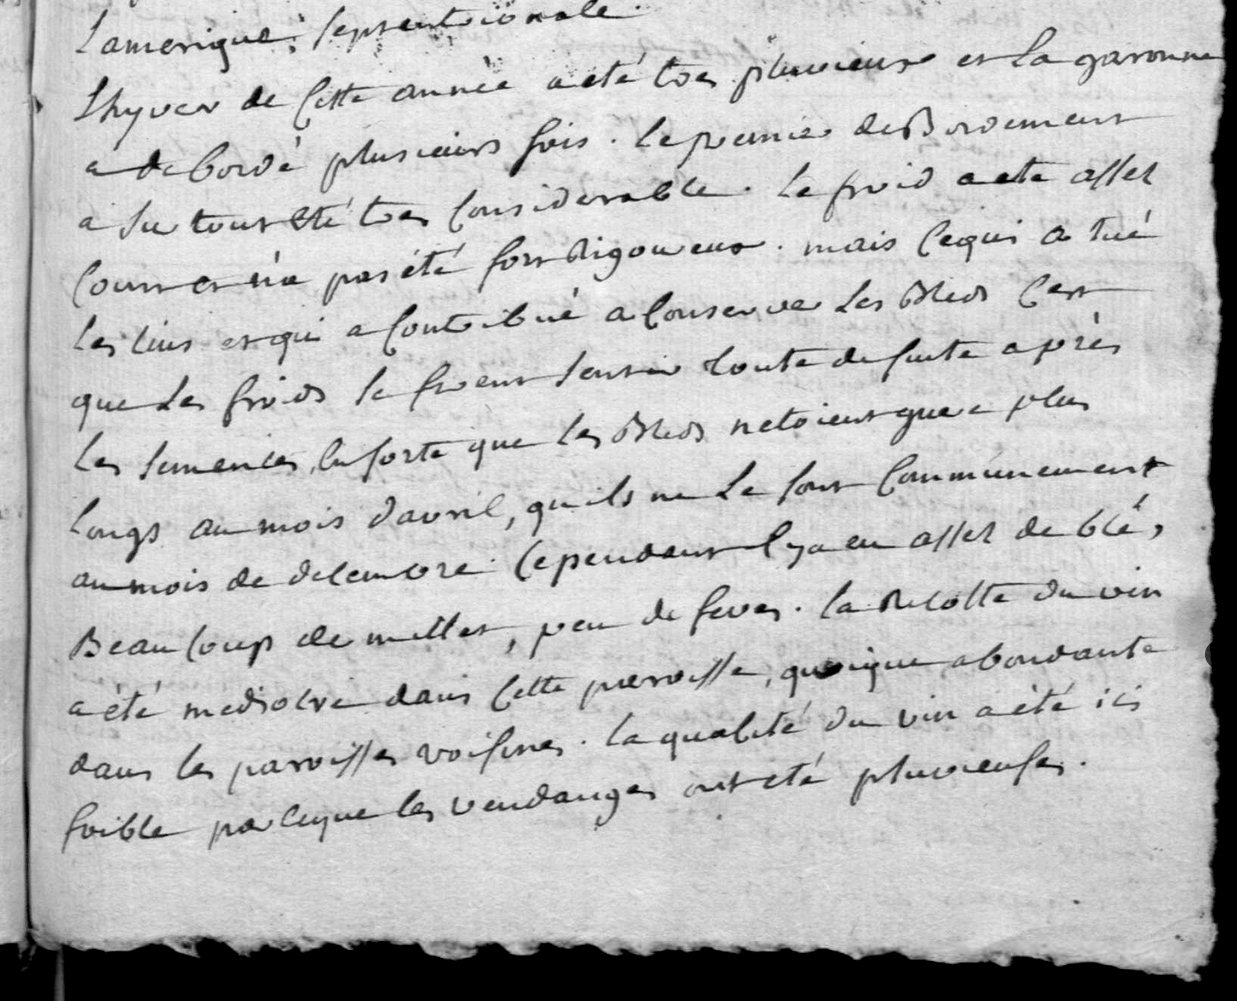 Lamerique septentrionale.
Lhyver de Cette année a été tres pluvieux et la garonne
a debordé plusieurs fois. le premier deBordement
a surtout été tres Considerable. Le froid a eté assez
Court et n'a pas été fort Rigoureux. mais Cequi a tué
Les lins et qui a Contribué a Conserver Les Bleds C'est
que Les froids se firent sentir toute de suite après
Les semences, ensorte que Les Bleds netoient guere plus
Longs au mois d'avril, quils ne Le sont Communement
au mois de decembre. Cependant il y a eu assez de blé,
Beaucoup de millet, peu de feves. la Recolte du vin
a été mediocre dans Cette paroisse, quoique abondante
dans les paroisses voisines. la qualité du vin a été ici
foible parceque les vendanges ont eté pluvieuses.